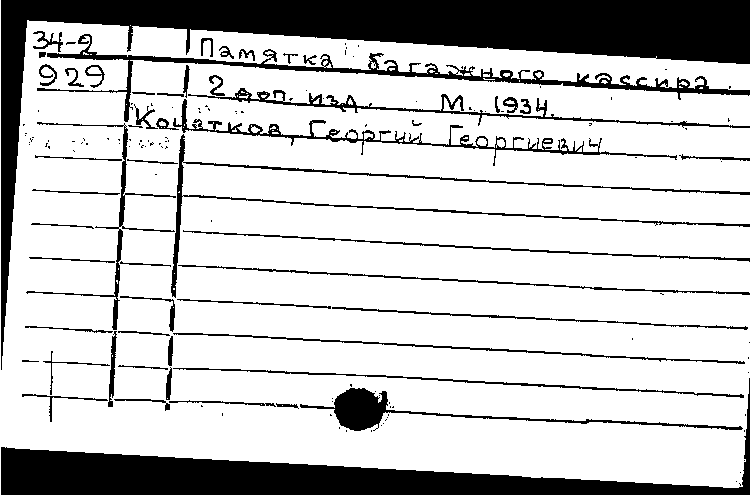 34-2 Памятка багажного кассира.
929 2 доп. изд. М., 1934.
Кочетков, Георгий Георгиевич.